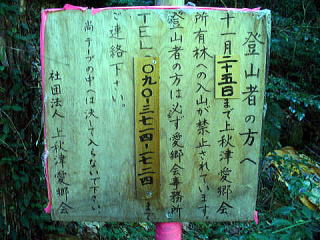 登山者の方へ
十一月二十五日まで上秋津愛郷会
所有林への入山が禁止されています。
登山者の方は必ず愛郷会事務所
TEL 〇九〇-三七一四-一七二四まで
ご連絡下さい。
尚テープの中へは決して入らないで下さい。
社団法人 上秋津愛郷会